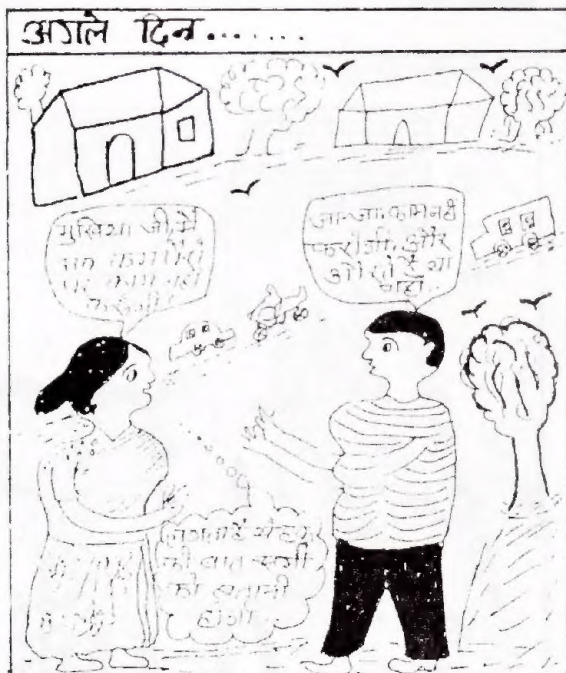 अगले दिन.......
मुखिया जी, मैं
कम पैसों
पर काम नहीं
करूंगी!
जा-जा काम नहीं
करोगी, और
औरतें हैं
यहां..
लगता है
की बात सभी
को बतानी
होगी